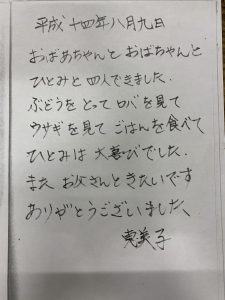 平成十四年八月九日
おばあちゃんとおばちゃんと
ひとみと四人できました.
ぶどうをとってロバを見て
ウサギを見てごはんを食べて
ひとみは大喜びでした.
また お父さんときたいです
ありがとうございました、
恵美子